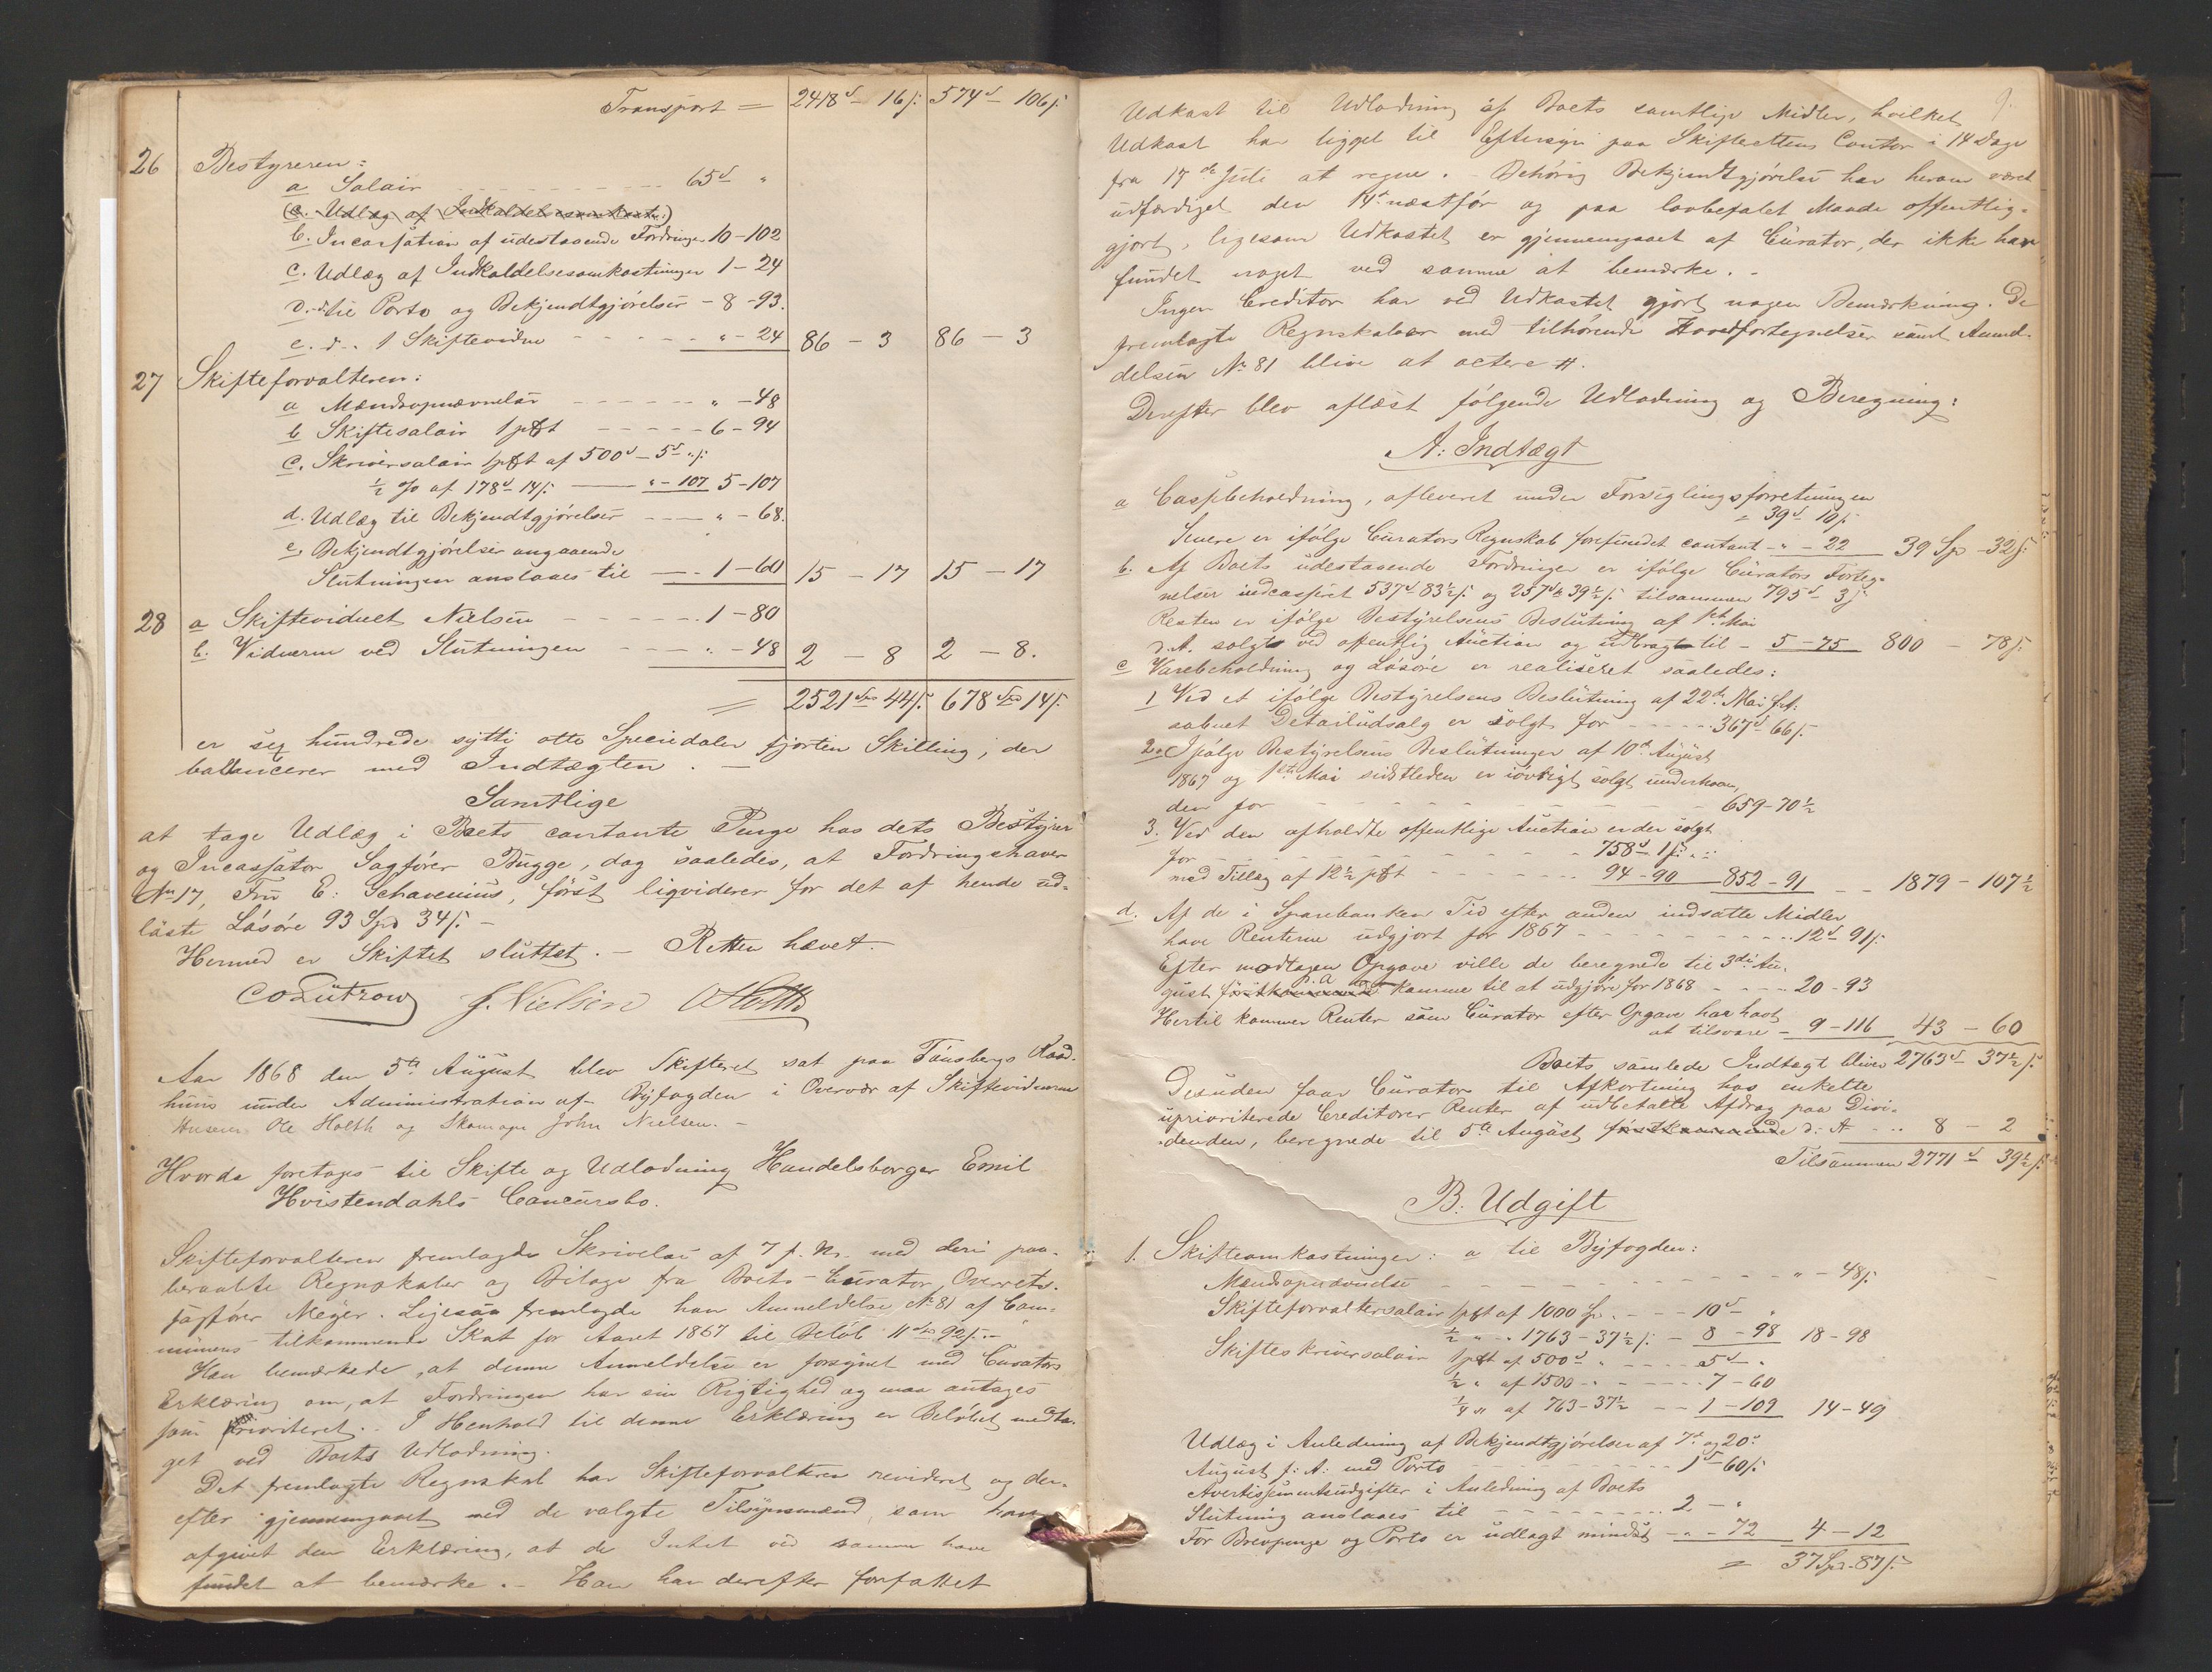 Transport = 2418d - 16s: 574d - 106s:
26 Bestyreren:
a Salair - - - - - - 65d "
(a. Udlæg af Indkaldelsesomkostn:)
b. Incassation af udestaaende Fordringer 10 - 102
c. Udlæg af Indkaldelsesomkostninger 1 - 24
d. - do til Porto og Bekjendtgjørelser - 8 - 93.
e. d - . 1 Skiftevidne - - - - - " - 24 86 - 3 86 - 3
27 Skifteforvalteren:
a Mandsopnævnelse - - - - - - " - 48
b Skiftesalair 1 pCt - - - - - 6 - 94
c. Skriversalair 1 pCt af 500d - 5d " s:
½ % af 178d - 14s: - " - 107 5 - 107
d. Udlæg til Bekjendtgjørelser - - - " - 68.
e. Bekjendtgjørelser angaaende
Slutningen anslaaes til - - 1 - 60 15 - 17 15 - 17
28 a Skiftevidnet Nielsen - - - - - 1 - 80
b. Vidnerne ved Slutningen - - - " - 48 2 - 8 2 - 8.
= 2521 Spd 44s: 678 Spd 14s:
er sex hundrede sytti otte Speciedaler fjorten Skilling, der
ballancerer med Indtægten. -
Samtlige
at tage Udlæg i Boets contante Penge hos dets Bestyrer
og Incassator Sagfører Bugge, dog saaledes, at Fordringshaver
No 17, Fru E. Schavenius, først liqviderer for det af hende ud-
læste Løsøre 93 Spd 34s: -
Hermed er Skiftet sluttet. - Retten hævet. -
CO Lützow J. Nielsen O Holth
Aar 1868 den 5te August blev Skifteret sat paa Tønsbergs Raad-
huus under Administration af Byfogden i Overvær af Skiftevidnerne
Huseier Ole Holth og Skomager John Nielsen. -
Hvorda foretages til Skifte og Udlodning Handelsborger Emil
Hvistendahls Concursbo.
Skifteforvalteren fremlagde Skrivelse af 7 f. M. med deri paa-
beraabte Regnskaber og Bilage fra Boets Curator, Overrets-
sagfører Meyer. Ligesaa fremlagde han Anmeldelse No 81 af Com-
munens tilkommende Skat for Aaret 1867 til Beløb 11 Spd 92s: -
Han bemærkede, at denne Anmeldelse er forsynet med Curators
Erklæring om, at Fordringen har sin Rigtighed og maa antages
som prioriteret. - I Henhold til denne Erklæring er Beløbet medta-
get ved Boets Udlodning.
Det fremlagte Regnskab har Skifteforvalteren revideret og der-
efter gjennemgaaet med de valgte Tilsynsmænd, som have
afgivet den Erklæring, at de Intet ved samme have
fundet at bemærke. - Han har derefter forfattet
Udkast til Udlodning af Boets samtlige Midler, hvilket
Udkast har ligget til Eftersyn paa Skifterettens Contor i 14 Dage
fra 17de Juli at regne. - Behørig Bekjendtgjørelse har herom været
udfærdiget den 14d næstfør og paa lovbefalet Maade offentlig-
gjort, ligesom Udkastet er gjennemgaaet af Curator, der ikke har
fundet noget ved samme at bemærke. -
Ingen Creditor har ved Udkastet gjort nogen Bemærkning. De
fremlagte Regnskaber med tilhørende Hovedfortegnelser samt Anmel-
delsen No 81 blive at actere #.
Derefter blev aflæst følgende Udlodning og Beregning:
A: Indtægt
a Cassebeholdning, afleveret under Forseglingsforretningen
= 39d - 10s:
Senere er ifølge Curators Regnskab forefundet contant - " - 22 39 Sp - 32s:
b. Af Boets udestaaende Fordringer er ifølge Curators Forteg-
nelser indcasseret 537d 83½s: og 257d 39½s: tilsammen 795d - 3s
Resten er ifølge Bestyrelsens Beslutning af 1ste Mai
d. A. solgt ved offentlig Auction og udbragt til - 5 - 75 800 - 78s:
c Varebeholdning og Løsøre er realiseret saaledes:
1 Ved et ifølge Bestyrelsens Beslutning af 22de Mai f. A.
aabnet Detailudsalg er solgt for - - - - - 367d 66s:
2. Ifølge Bestyrelsens Beslutninger af 10de August
1867 og 1ste Mai sidstleden er iøvrigt solgt underhaan-
den for - - - - - - - - - - 659 - 70½
3. Ved den afholdte offentlige Auction er der solgt
for - - - - - - - - - 758d 1s: "
med Tillæg af 12½ pCt - - - - - 94 - 90 852 - 91 - - 1879 - 107½
d. Af de i Sparebanken Tid efter anden indsatte Midler
have Renterne udgjort for 1867 - - - - - - - - 12d 91s:
Efter modtagen Opgave ville de beregnede til 3die Au-
gust førstkommende d. A. komme til at udgjøre for 1868 - - - - 20 - 93
Hertil kommer Renter som Curator efter Opgave har havt
at tilsvare - 9 - 116 43 - 60
Boets samlede Indtægt bliver 2763d - 37½s:
Desuden faar Curator til Afkortning hos enkelte
uprioriterede Creditorer Renter af udbetalte Afdrag paa Divi-
denden, beregnede til 5te August førstkommende d. A - .. 8 - 2
Tilsammen 2771d 39½s:
B: Udgift
1. Skifteomkostninger: a til Byfogden:
Mandsopnævnelse - - - - - - - - - - " - 48s:
Skifteforvaltersalair 1 pCt af 1000 Sp. - - - 10d - "
½ " - . 1763 - 37½s: - 8 - 98 18 - 98
Skifteskriversalair 1 pCt af 500d " - - - - 5d - "
½ " af 1500 - " - - - - 7 - 60
¼ " af 763 - 37½ - - 1 - 109 14 - 49
Udlæg i Anledning af Bekjendtgjørelser af 7d og 20d
August f: A: med Porto - - - - - - - - - - 1d - 60s:
Avertissementsudgifter i Anledning af Boets
Slutning anslaaes til - - - - - - - - 2 - "
For Brevpenge og Porto er udlagt mindst - " - 72 4 - 12
= 37 Spd - 87s: